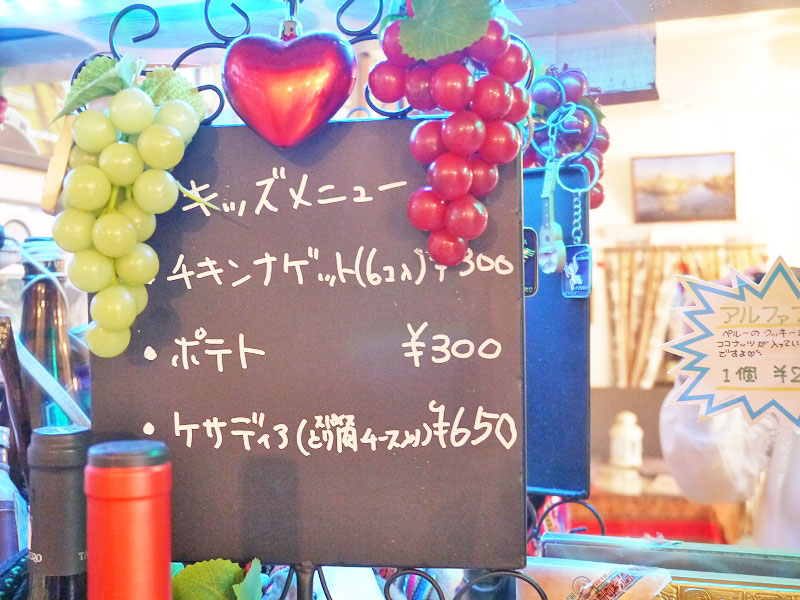 キッズメニュー
・チキンナゲット(6コ入)¥300
・ポテト ¥300
・ケサディヤ(とり肉チーズ入り)¥650
アルファ
ペルーのクッキー
ココナッツが入ってい
ですよ♡
1個 ¥2